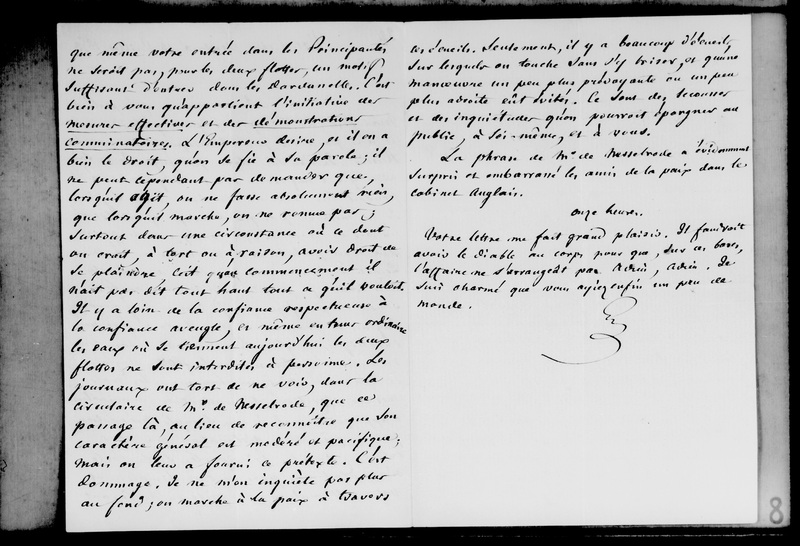 que même votre entrée dans les Principautés
ne serait pas, pour les deux flottes, un motif
suffisant d'entrer dans les Dardanelles. C'est
bien à vous qu'appartient l'initiative des
mesures effectives et des démonstrations
comminatoires. L'Empereur désire, et il en a
bien le droit, qu'on se fie à sa parole ; il
ne peut cependant pas demander que,
lorsqu'il agit, on ne fasse absolument rien,
que lorsqu'il marche, on ne remue pas ;
surtout dans une circonstance où ce dont
on croit, à tort ou à raison, avoir droit de
se plaindre c'est qu'au commencement il
n'ait pas dit tout haut tout ce qu'il voulait.
Il y a loin de la confiance respectueuse à
la confiance aveugle, et même en tems ordinaire
les eaux où se tiennent aujourd'hui les deux
flottes ne sont interdites à personne. Les
journaux ont tort de ne voir, dans la
circulaire de Mr. de Nesselrode, que ce
passage là, au lieu de reconnaître que son
caractère général est modéré et pacifique ;
mais on leur a fourni ce prétexte. C'est
dommage. Je ne m'en inquiète pas plus
au fond ; on marche à la paix à travers
les écueils. Seulement, il y a beaucoup d'écueils
sur lesquels on touche sans s'y briser, et qu'une
manœuvre un peu plus prévoyante ou un peu
plus adroite eût évités. Ce sont des secousses
et des inquiétudes qu'on pourrait épargner au
public, à soi-même, et à vous.
La phrase de Mr. de Nesselrode a évidemment
surpris et embarrassé les amis de la paix dans le
cabinet Anglais.
Onze heures.
Votre lettre me fait grand plaisir. Il faudrait
avoir le diable au corps pour que, sur ces bases,
l'affaire ne s'arrangeât pas. Adieu, Adieu. Je
suis charmé que vous ayiez enfin un peu de
monde.
8